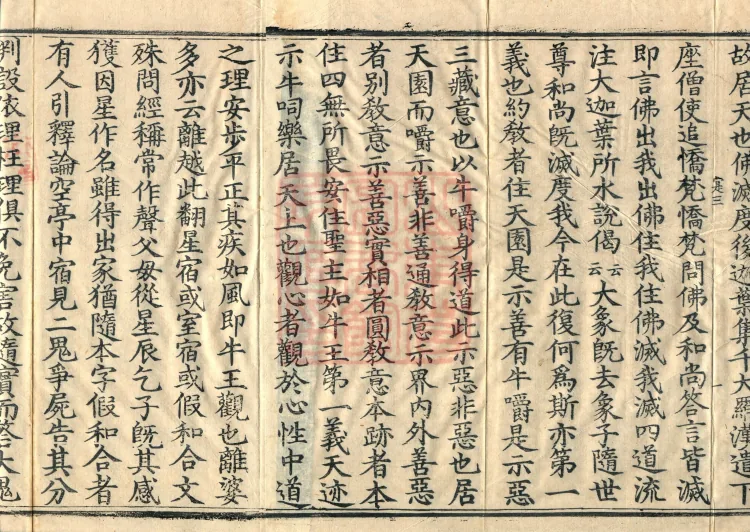 故居天也佛滅度後迦葉集千大羅漢遣下
座僧使追憍梵憍梵問佛及和尚答言皆滅
即言佛出我出佛住我住佛滅我滅四道流
注大迦葉所水說偈云云大象旣去象子隨世
尊和尚旣滅度我今在此復何爲斯亦第一
義也約敎者住天園是示善有牛嚼是示惡
三藏意也以牛嚼身得道此示惡非惡也居
天園而嚼示善非善通敎意示界內外善惡
者別敎意示善惡實相者圓敎意本跡者本
住四無所畏安住聖主如牛王第一義天迹
示牛呞樂居天上也觀心者觀於心性中道
之理安步平正其疾如風即牛王觀也離婆
多亦云離越此翻星宿或室宿或假和合文
殊問經稱常作聲父母從星辰乞子旣其感
獲因星作名雖得出家猶隨本字假和合者
有人引釋論空亭中宿見二鬼爭屍告其分
判設依理枉理俱不免害故隨實而答大鬼